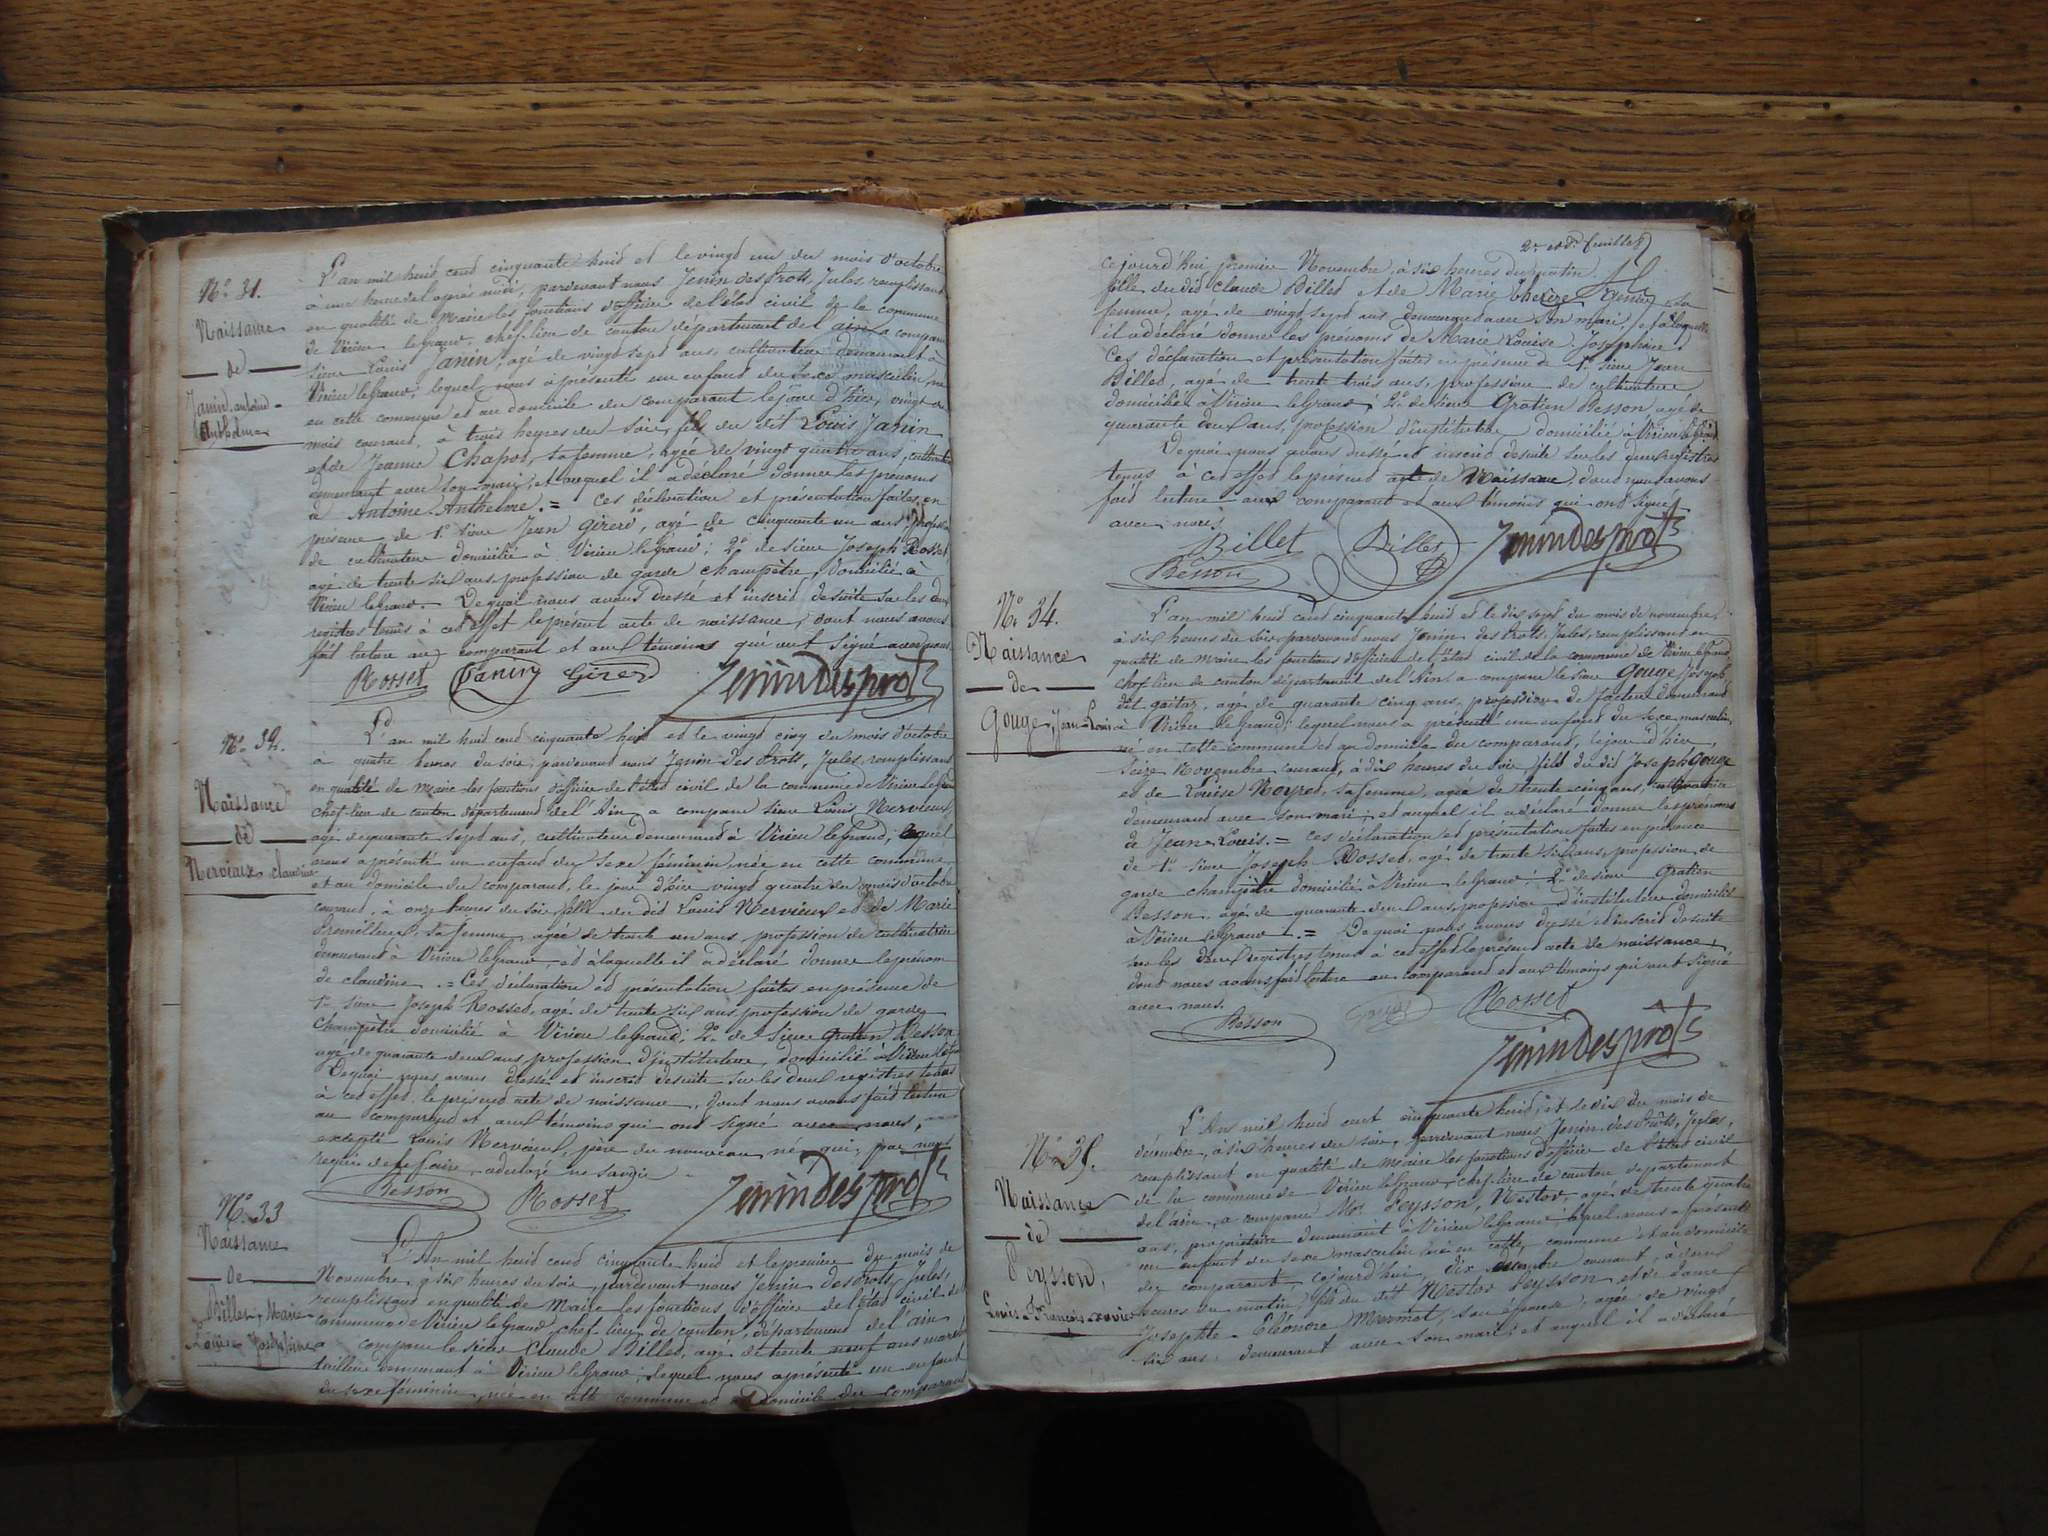 N.o 31.
Naissance
de
Janin, antoine
Anthelme
L'an mil huid cend cinquante huid et le vingt un du mois d'octobre
à une heure del'après midi, pardevant nous Jenin des prots, Jules, remplissant
en qualité de Maire les fonctions d'officier de l'état civil de la commune
de Virieu legrand, chef-lieu de canton département del'ain a comparu
sieur Louis Janin, agé de vingt sept ans, cultivateur demeurant à
Virieu legrand; lequel nous à présenté un enfant du sexe masculin, né
en cette commune et au domicile du comparant le jour d'hier, vingt du
mois courant, à trois heures du soir, fils du dit Louis Janin
et de Jeanne Chapot, sa femme, agée de vingt quatre ans, 
demeurant avec son mari, et auquel il a déclaré donner les prénoms
d' Antoine Anthelme. = Ces déclaration et présentation faites en
présence de 1.o sieur Jean Girerd, agé de cinquante un ans, profession
de cultivateur domicilié à Virieu legrand; 2.o de sieur Joseph Rosset
agé de trente six ans, profession de garde champêtre, domicilié à
Virieu legrand. Dequoi nous avons dressé et inscrid desuite sur les deux
registres tenus à ced effet le présent acte de naissance, dont nous avons
fait lecture au comparant et aux témoins qui ont signé avec nous.
Rosset Janin Girerd Jenindesprots
N.o 32.
Naissance
de
Nervieux claudine
L'an mil huid cend cinquante huid et le vingt cinq du mois d'octobre
à quatre heures du soir, pardevant nous Jenin des prots, Jules, remplissant
en qualité de Maire les fonctions d'officier de l'état civil de la commune de Virieu legrand
chef-lieu de canton département de l'Ain, a comparu sieur Louis Nervieux
agé de quarante sept ans, cultivateur demeurant à Virieu legrand, lequel
nous a présenté un enfant du sexe féminin, née en cette commune
et au domicile du comparant, le jour d'hier vingt quatre du mois d'octobre
courant, à onze heures du soir, fille du dit Louis Nervieux et de Marie
sa femme, agée de trente un ans, profession de cultivatrice
demeurant à Virieu legrand, et à laquelle il a déclaré donner le prénom
de claudine. = Ces déclaration et présentation faites en présence de
1.o sieur Joseph Rosset, agé de trente six ans, profession de garde
champêtre domicilié à Virieu legrand; 2.o de sieur Gratien Besson
agé de quarante deux ans, profession d'instituteur, domicilié à Virieu legrand
Dequoi nous avons dressé et inscrid desuite sur les deux registres tenus
à ced effet le présent acte de naissance, dont nous avons fait lecture
au comparant et aux témoins qui ont signé avec nous,
excepté Louis Nervieux, père du nouveau né qui, par nous
requis de le faire, a déclaré ne savoir.
Besson Rosset Jenindesprots
N.o 33
Naissance
de
Billet, Marie
Louise Joséphine
L'An mil huid cend cinquante huid et le premier du mois de
Novembre, à six heures du soir, pardevant nous Jenin des prots, Jules,
remplissant en qualité de Maire les fonctions d'officier de l'état civil de
commune de Virieu legrand, chef-lieu de canton, département del'ain
a comparu le sieur Claude Billet, agé de trente neuf ans
demeurant à Virieu legrand; lequel nous a présenté un enfant
du sexe féminin, née en cette commune et au domicile du comparant
2.e et d.r feuillet
cejourd'hui premier Novembre, à six heures du matin
fille du did Claude Billet et de Marie Therèze sa
femme, agé de vingt sept ans demeurant avec son mari, et à laquelle
il a déclaré donner les prénoms de Marie Louise Joséphine.
Ces déclaration et présentation faites en présence de 1.o sieur Jean
Billet, agé de trente trois ans, profession de cultivateur
domicilié à Virieu legrand; 2.o de sieur Gratien Besson agé de
quarante deux ans, profession d'instituteur domicilié à Virieu legrand
Dequoi nous avons dressé et inscrid desuite sur les deux registres
tenus à ced effet le présent acte de Naissance, dont nous avons
fait lecture aux comparant et aux témoins qui ont signé
avec nous.
Billet Billet Jenindesprots
Besson
N.o 34.
Naissance
de
Gouge, Jean-Louis
L'an mil huid cend cinquante huid et le dix sept du mois de novembre,
à six heures du soir, pardevant nous Jenin des prots, Jules, remplissant en
qualité de maire les fonctions d'officier de l'état civil de la commune de Virieu legrand
chef-lieu de canton département de l'Ain, a comparu le sieur Gouge Joseph,
dit agé de quarante cinq ans, profession de facteur demeurant
à Virieu legrand; lequel nous a présenté un enfant du sexe masculin,
né en cette commune et au domicile du comparant, le jour d'hier,
Seize Novembre courant, à dix heures du soir, fils du did Joseph Gouge
et de Louise sa femme, agée de trente cinq ans, cultivatrice
demeurant avec son mari, et auquel il a déclaré donner les prénoms
de Jean-Louis. = Ces déclaration et présentation faites en présence
de 1.o sieur Joseph Rosset, agé de trente six ans, profession de
garde champêtre domicilié à Virieu legrand; 2.o de sieur Gratien
Besson, agé de quarante deux ans, profession d'instituteur domicilié
à Virieu legrand. = Dequoi nous avons dressé et inscrid desuite
sur les deux registres tenus à ced effet le présent acte de naissance,
dont nous avons fait lecture au comparant et aux témoins qui ont signé
avec nous.
Besson Gouge Rosset
Jenindesprots
N.o 35.
Naissance
de
Peysson,
Louis-François-xavier
L'An mil huid cent cinquante huid, et le dix du mois de
décembre, à six heures du soir, pardevant nous Jenin des prots, Jules,
remplissant en qualité de Maire les fonctions d'officier de l'état civil
de la commune de Virieu legrand, chef-lieu de canton département
de l'ain, a comparu Mr Peysson, Nestor, agé de trente quatre
ans, propriétaire demeurant à Virieu legrand lequel nous a présenté
un enfant du sexe masculin né en cette commune et au domicile
du comparant, cejourd'hui, dix décembre courant, à deux
heures du matin, fils du dit Nestor Peysson et de dame
Josephte-Eléonore Mermet, son épouse, agée de vingt
six ans, demeurant avec son mari; et auquel il a déclaré